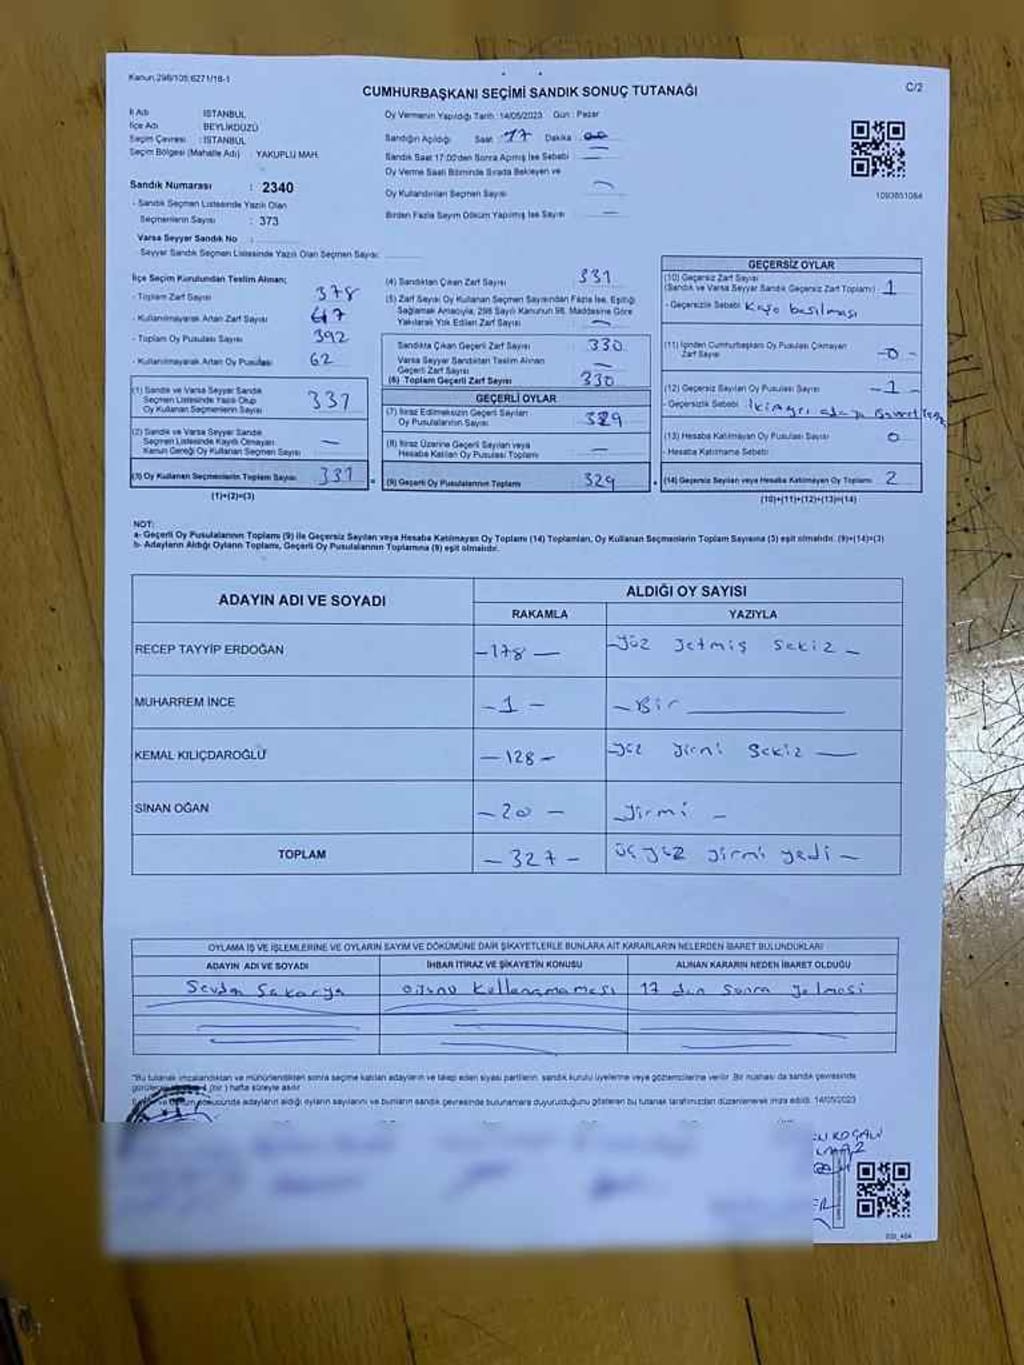 Kanun:298/105;6271/18-1
CUMHURBAŞKANI SEÇİMİ SANDIK SONUÇ TUTANAĞI
C/2
İl Adı İSTANBUL
İlçe Adı BEYLİKDÜZÜ
Seçim Çevresi : İSTANBUL
Seçim Bölgesi (Mahalle Adı) : YAKUPLU MAH.
Sandık Numarası : 2340
- Sandık Seçmen Listesinde Yazılı Olan
Seçmenlerin Sayısı : 373
Varsa Seyyar Sandık No :
Seyyar Sandık Seçmen Listesinde Yazılı Olan Seçmen Sayısı:
Oy Vermenin Yapıldığı Tarih :14/05/2023 Gün : Pazar
Sandığın Açıldığı Saat 17 Dakika 00
Sandık Saat 17:00'den Sonra Açılmış İse Sebebi
Oy Verme Saati Bitiminde Sırada Bekleyen ve
Oy Kullandırılan Seçmen Sayısı
Birden Fazla Sayım Döküm Yapılmış İse Sayısı
1093851084
İlçe Seçim Kurulundan Teslim Alınan;
- Toplam Zarf Sayısı 378
- Kullanılmayarak Artan Zarf Sayısı 47
- Toplam Oy Pusulası Sayısı 392
- Kullanılmayarak Artan Oy Pusulası 62
(1) Sandık ve Varsa Seyyar Sandık
Seçmen Listesinde Yazılı Olup
Oy Kullanan Seçmenlerin Sayısı 331
(2) Sandık ve Varsa Seyyar Sandık
Seçmen Listesinde Kayıtlı Olmayan
Kanun Gereği Oy Kullanan Seçmen Sayısı —
(3) Oy Kullanan Seçmenlerin Toplam Sayısı 331
(1)+(2)=(3)
(4) Sandıktan Çıkan Zarf Sayısı 331
(5) Zarf Sayısı Oy Kullanan Seçmen Sayısından Fazla İse, Eşitliği
Sağlamak Amacıyla, 298 Sayılı Kanunun 98. Maddesine Göre
Yakılarak Yok Edilen Zarf Sayısı —
Sandıkta Çıkan Geçerli Zarf Sayısı 330
Varsa Seyyar Sandıktan Teslim Alınan
Geçerli Zarf Sayısı —
(6) Toplam Geçerli Zarf Sayısı 330
GEÇERLİ OYLAR
(7) İtiraz Edilmeksizin Geçerli Sayılan
Oy Pusulalarının Sayısı 329
(8) İtiraz Üzerine Geçerli Sayılan veya
Hesaba Katılan Oy Pusulası Toplamı —
(9) Geçerli Oy Pusulalarının Toplamı 329
GEÇERSİZ OYLAR
(10) Geçersiz Zarf Sayısı
(Sandık ve Varsa Seyyar Sandık Geçersiz Zarf Toplamı) 1
- Geçersizlik Sebebi Kaşe basılması
(11) İçinden Cumhurbaşkanı Oy Pusulası Çıkmayan
Zarf Sayısı -0-
(12) Geçersiz Sayılan Oy Pusulası Sayısı -1-
- Geçersizlik Sebebi
(13) Hesaba Katılmayan Oy Pusulası Sayısı 0
- Hesaba Katılmama Sebebi
(14) Geçersiz Sayılan veya Hesaba Katılmayan Oy Toplamı 2
(10)+(11)+(12)+(13)=(14)
NOT:
a- Geçerli Oy Pusulalarının Toplamı (9) ile Geçersiz Sayılan veya Hesaba Katılmayan Oy Toplamı (14) Toplamları, Oy Kullanan Seçmenlerin Toplam Sayısına (3) eşit olmalıdır. (9)+(14)=(3)
b- Adayların Aldığı Oyların Toplamı, Geçerli Oy Pusulalarının Toplamına (9) eşit olmalıdır.
ADAYIN ADI VE SOYADI
ALDIĞI OY SAYISI
RAKAMLA YAZIYLA
RECEP TAYYİP ERDOĞAN -178- -yüz yetmiş sekiz-
MUHARREM İNCE -1- -Bir
KEMAL KILIÇDAROĞLU -128- -yüz yirmi sekiz-
SİNAN OĞAN -20- -yirmi-
TOPLAM -327- üç yüz yirmi yedi-
OYLAMA İŞ VE İŞLEMLERİNE VE OYLARIN SAYIM VE DÖKÜMÜNE DAİR ŞİKAYETLERLE BUNLARA AİT KARARLARIN NELERDEN İBARET BULUNDUKLARI
ADAYIN ADI VE SOYADI İHBAR İTİRAZ VE ŞİKAYETİN KONUSU ALINAN KARARIN NEDEN İBARET OLDUĞU
Sevda Sakarya oyunu kullanamaması 17 den sonra gelmesi
"Bu tutanak imzalandıktan ve mühürlendikten sonra seçime katılan adayların ve talep eden siyasi partilerin, sandık kurulu üyelerine veya gözlemcilerine verilir. Bir nüshası da sandık çevresinde
(bir) hafta süreyle asılır.
adayların aldığı oyların sayılarını ve bunların sandık çevresinde bulunanlara duyurulduğunu gösteren bu tutanak tarafımızdan düzenlenerek imza edildi. 14/05/2023